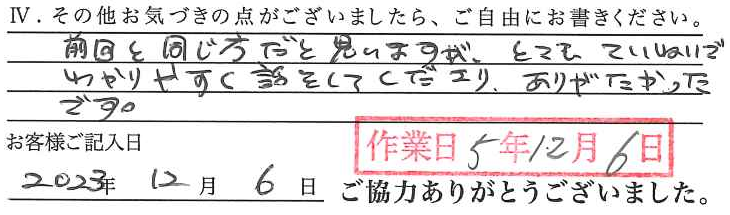 Ⅳ．その他お気づきの点がございましたら、ご自由にお書きください。
前回と同じ方だと思いますが、とても ていねいで
わかりやすく話をしてくださり、ありがたかった
です。
お客様ご記入日
作業日5年12月6日
2023年 12月 6日 ご協力ありがとうございました。